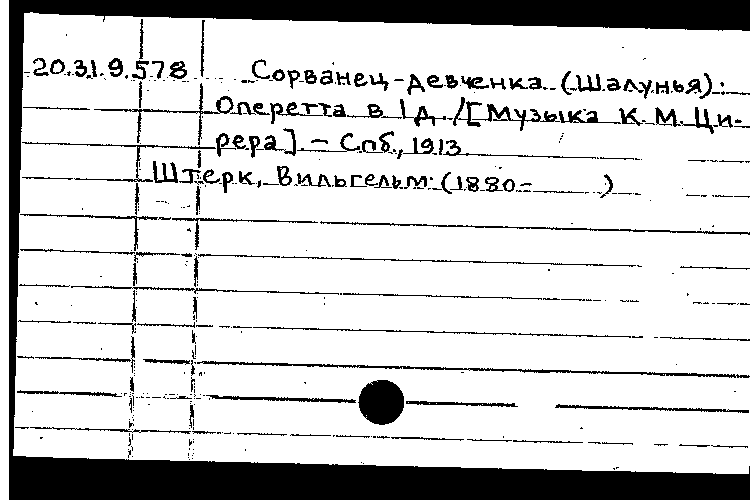 20.31.9.578 Сорванец-девченка (Шалунья):
Оперетта в 1 д. /[Музыка К. М. Ци-
рера]. - Спб., 1913
Штерк, Вильгельм (1880- )